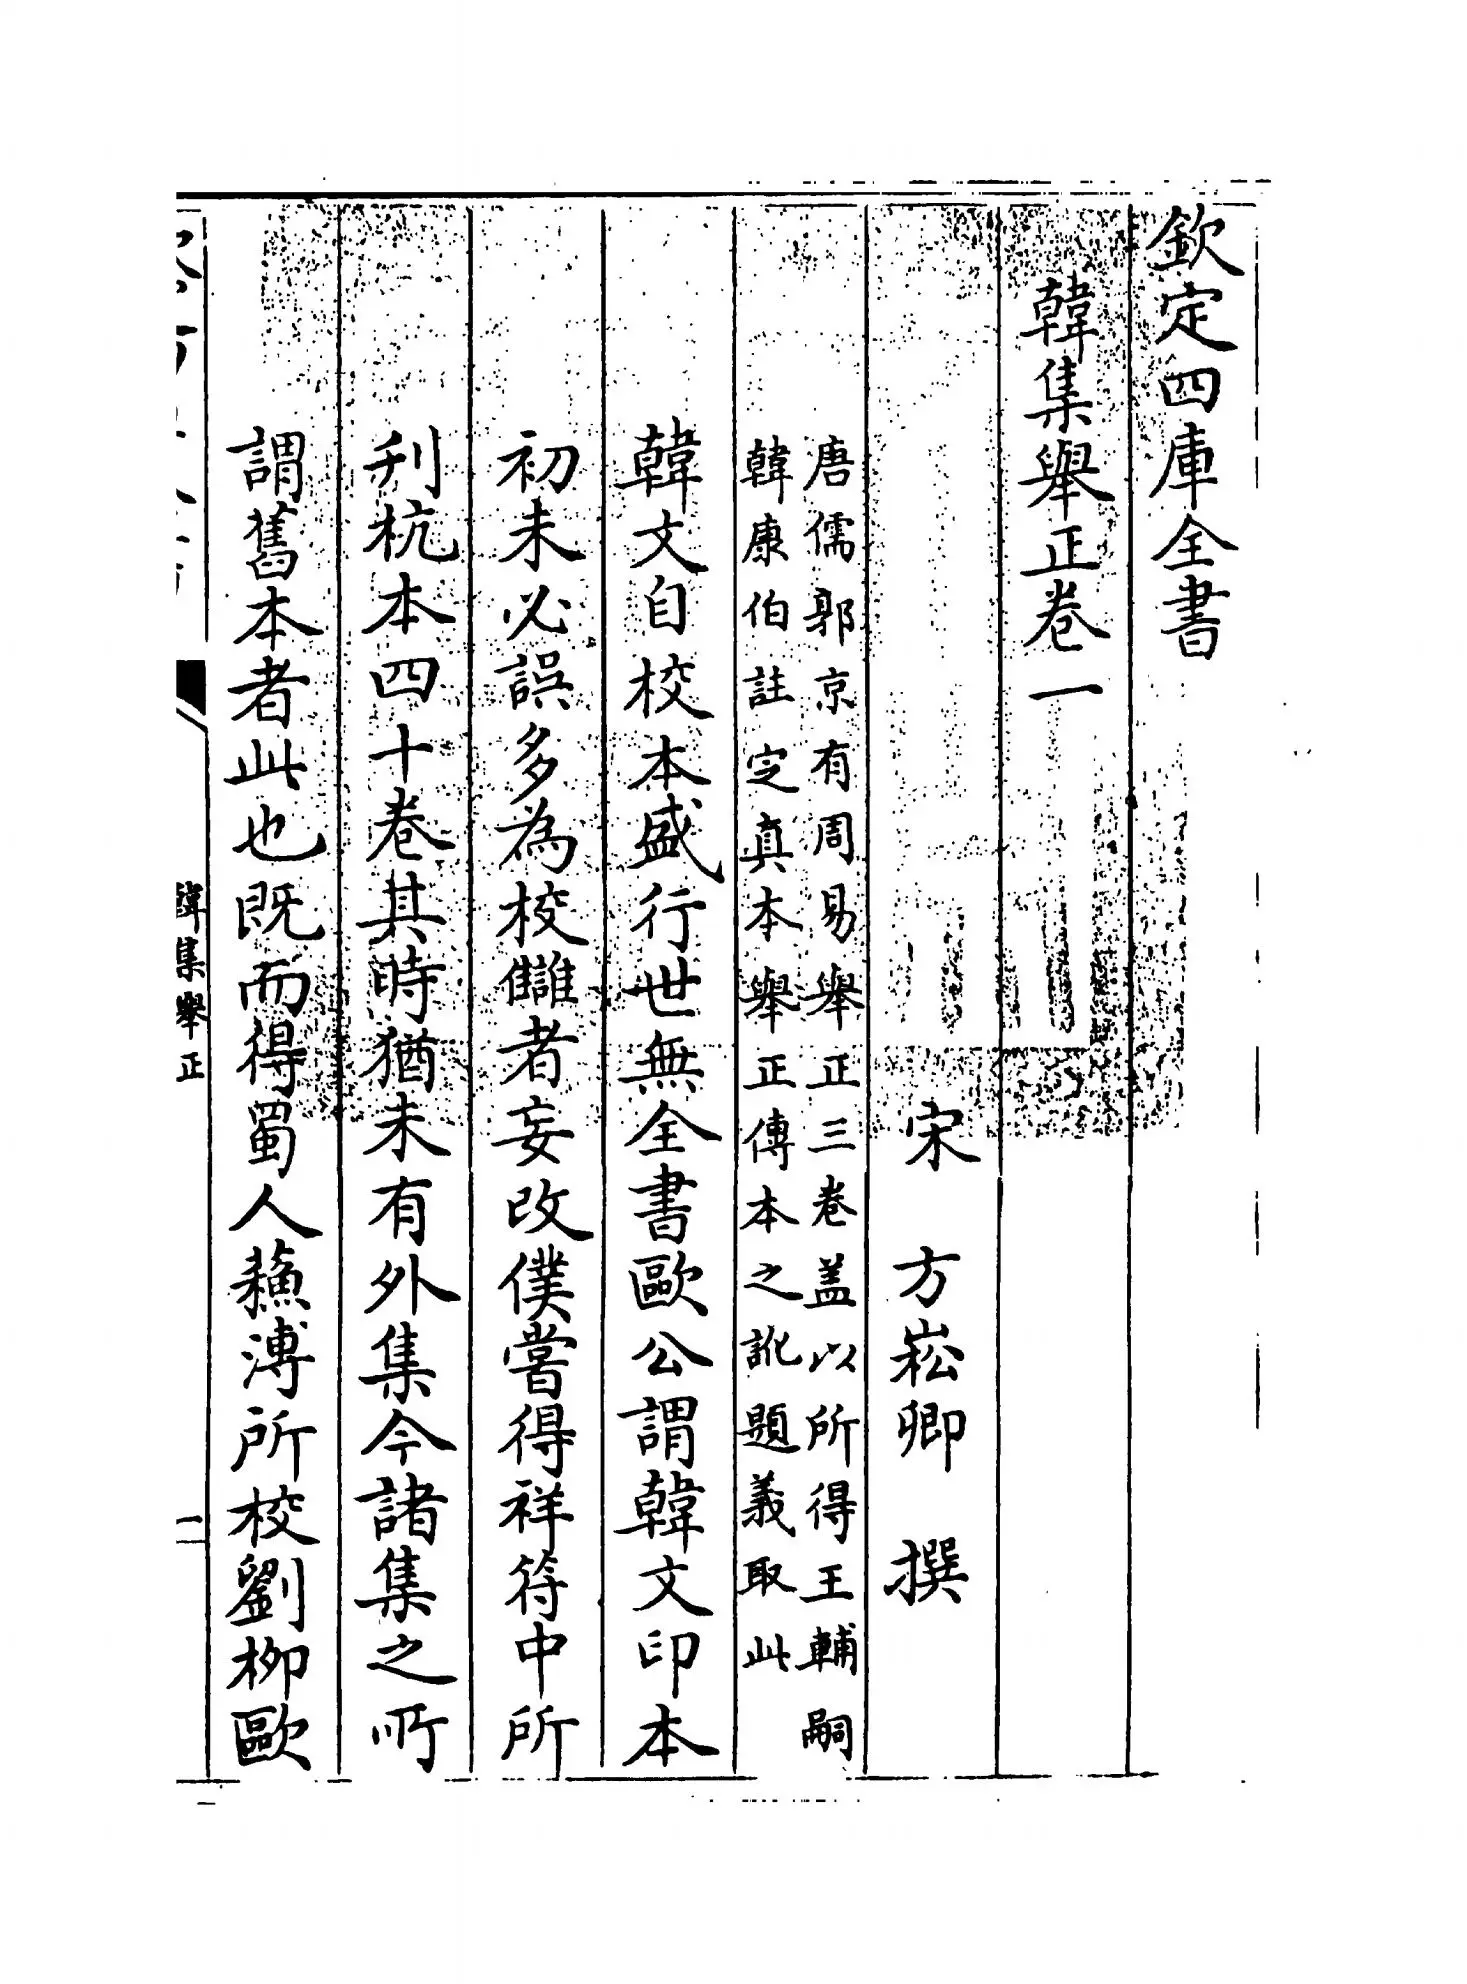 欽定四庫全書
韓集舉正卷一
宋 方崧卿 撰
唐儒郭京有周易舉正三卷盖以所得王輔嗣
韓康伯註定真本舉正傳本之訛題義取此
韓文自校本盛行世無全書歐公謂韓文印本
初未必誤多為校讎者妄改僕嘗得祥符中所
刋杭本四十卷其時猶未有外集今諸集之所
謂舊本者此也既而得蜀人蘓溥所校劉柳歐
韓集舉正
一